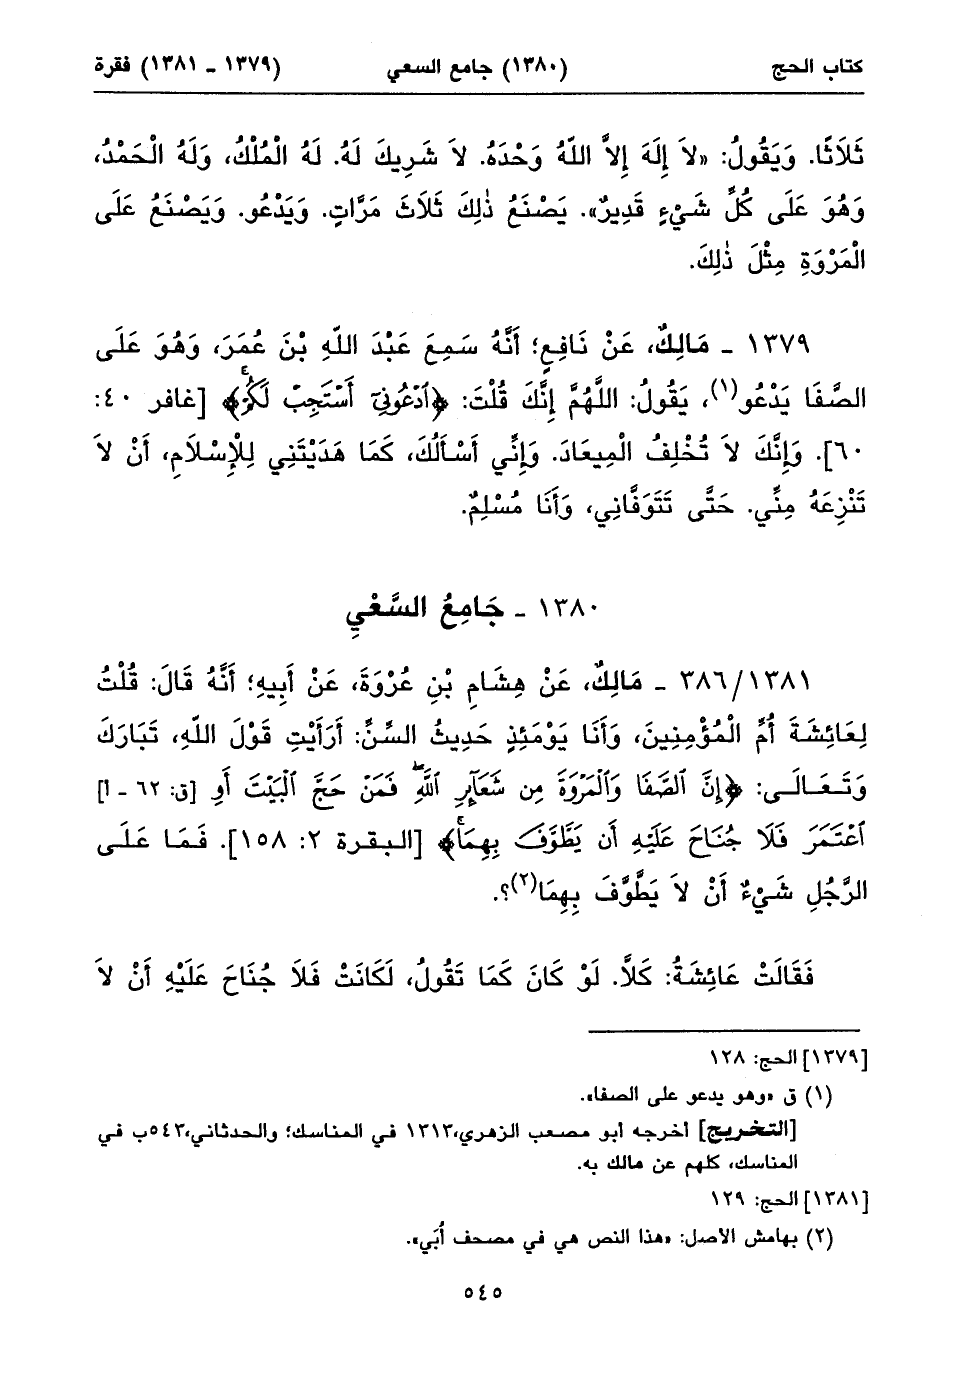 كتاب الحج (١٣٨٠) جامع السعي (١٣٧٩ ـ ١٣٨١) فقرة
ثَلَاثًا. وَيَقُولُ: «لاَ إِلَهَ إِلاَّ اللَّهُ وَحْدَهُ. لاَ شَرِيكَ لَهُ. لَهُ الْمُلْكُ، وَلَهُ الْحَمْدُ،
وَهُوَ عَلَى كُلِّ شَيْءٍ قَدِيرٌ». يَصْنَعُ ذٰلِكَ ثَلَاثَ مَرَّاتٍ. وَيَدْعُو. وَيَصْنَعُ عَلَى
الْمَرْوَةِ مِثْلَ ذٰلِكَ.
١٣٧٩ ـ مَالِكٌ، عَنْ نَافِعٍ؛ أَنَّهُ سَمِعَ عَبْدَ اللَّهِ بْنَ عُمَرَ، وَهُوَ عَلَى
الصَّفَا يَدْعُو(١)، يَقُولُ: اللَّهُمَّ إِنَّكَ قُلْتَ: ﴿ٱدْعُونِيٓ أَسْتَجِبْ لَكُمْۚ﴾ [غافر ٤٠:
٦٠]. وَإِنَّكَ لاَ تُخْلِفُ الْمِيعَادَ. وَإِنِّي أَسْأَلُكَ، كَمَا هَدَيْتَنِي لِلْإِسْلَامِ، أَنْ لاَ
تَنْزِعَهُ مِنِّي. حَتَّى تَتَوَفَّانِي، وَأَنَا مُسْلِمٌ.
١٣٨٠ ـ جَامِعُ السَّعْيِ
٣٨٦/١٣٨١ ـ مَالِكٌ، عَنْ هِشَامِ بْنِ عُرْوَةَ، عَنْ أَبِيهِ؛ أَنَّهُ قَالَ: قُلْتُ
لِعَائِشَةَ أُمِّ الْمُؤْمِنِينَ، وَأَنَا يَوْمَئِذٍ حَدِيثُ السِّنِّ: أَرَأَيْتِ قَوْلَ اللهِ، تَبَارَكَ
وَتَعَالَى: ﴿إِنَّ ٱلصَّفَا وَٱلْمَرْوَةَ مِن شَعَآئِرِ ٱللَّهِۖ فَمَنْ حَجَّ ٱلْبَيْتَ أَوِ [ق: ٦٢ ـ أ]
ٱعْتَمَرَ فَلَا جُنَاحَ عَلَيْهِ أَن يَطَّوَّفَ بِهِمَاۚ﴾ [البقرة ٢: ١٥٨]. فَمَا عَلَى
الرَّجُلِ شَيْءٌ أَنْ لاَ يَطَّوَّفَ بِهِمَا(٢)؟.
فَقَالَتْ عَائِشَةُ: كَلاَّ. لَوْ كَانَ كَمَا تَقُولُ، لَكَانَتْ فَلاَ جُنَاحَ عَلَيْهِ أَنْ لاَ
[١٣٧٩] الحج: ١٢٨
(١) ق «وهو يدعو على الصفا».
[التخريج] أخرجه أبو مصعب الزهري،١٣١٣ في المناسك؛ والحدثاني،٥٤٣ب في
المناسك، كلهم عن مالك به.
[١٣٨١] الحج: ١٢٩
(٢) بهامش الأصل: «هذا النص هي في مصحف أُبَي».
٥٤٥